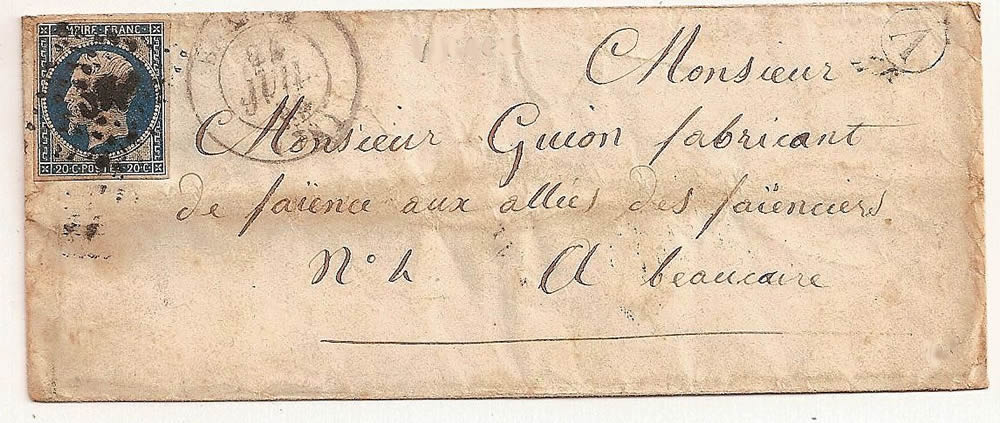 EMPIRE FRANC
20·C·POSTES·20·C·
JUIL
Monsieur
Monsieur Guion fabricant
de faïence aux alliés des faïenciers
N° 4 A beaucaire